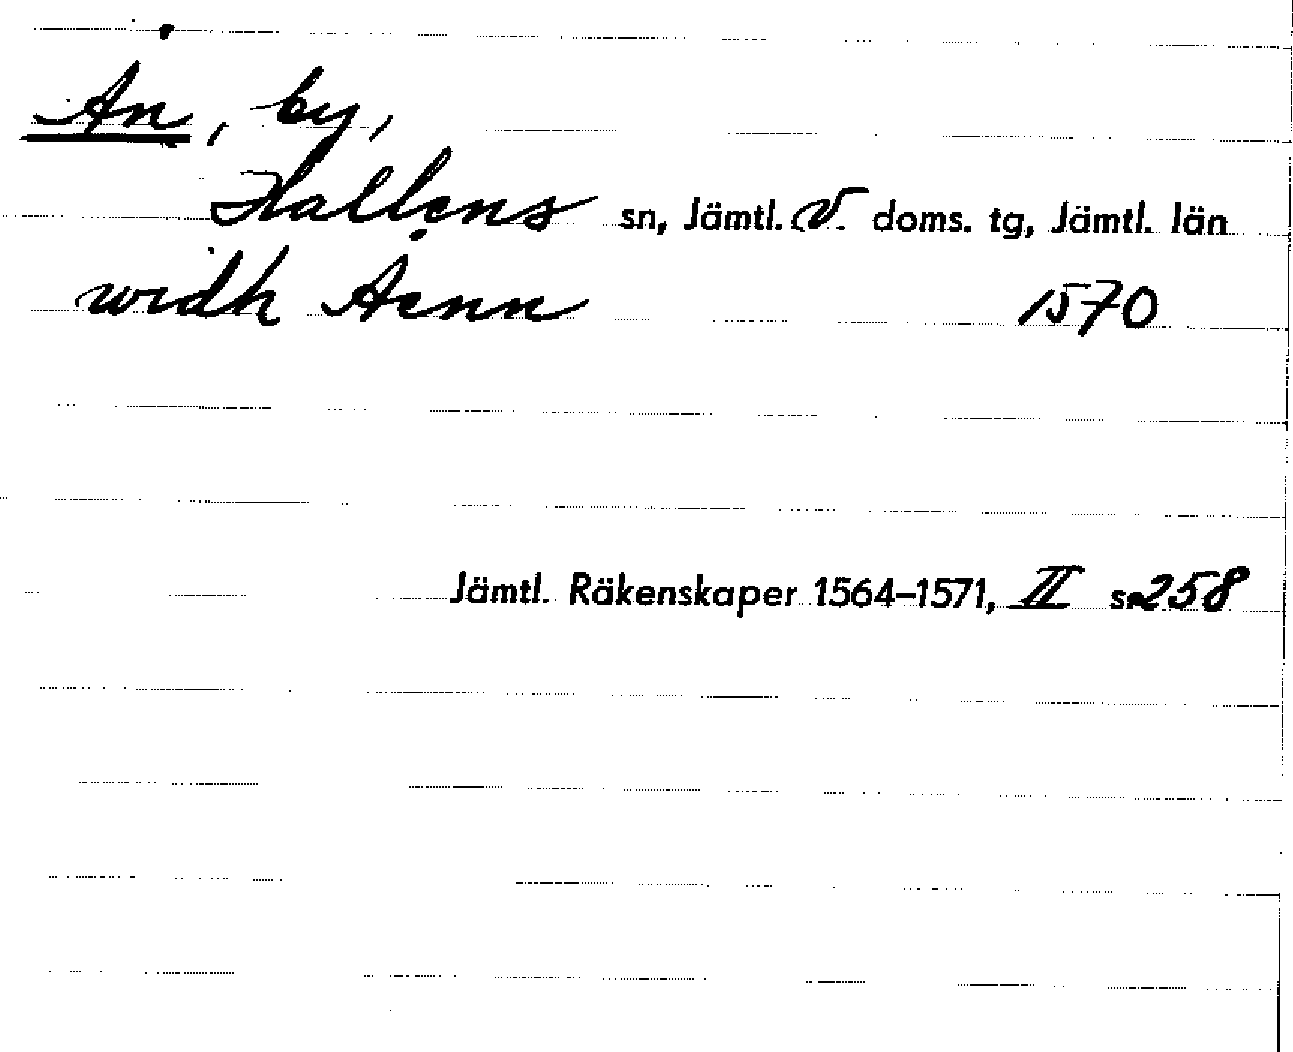 Ån, by,
Hallens sn, Jämtl. V. doms. tg, Jämtl. län
widh Aenn 1570
Jämtl. Räkenskaper 1564–1571, II s. 258